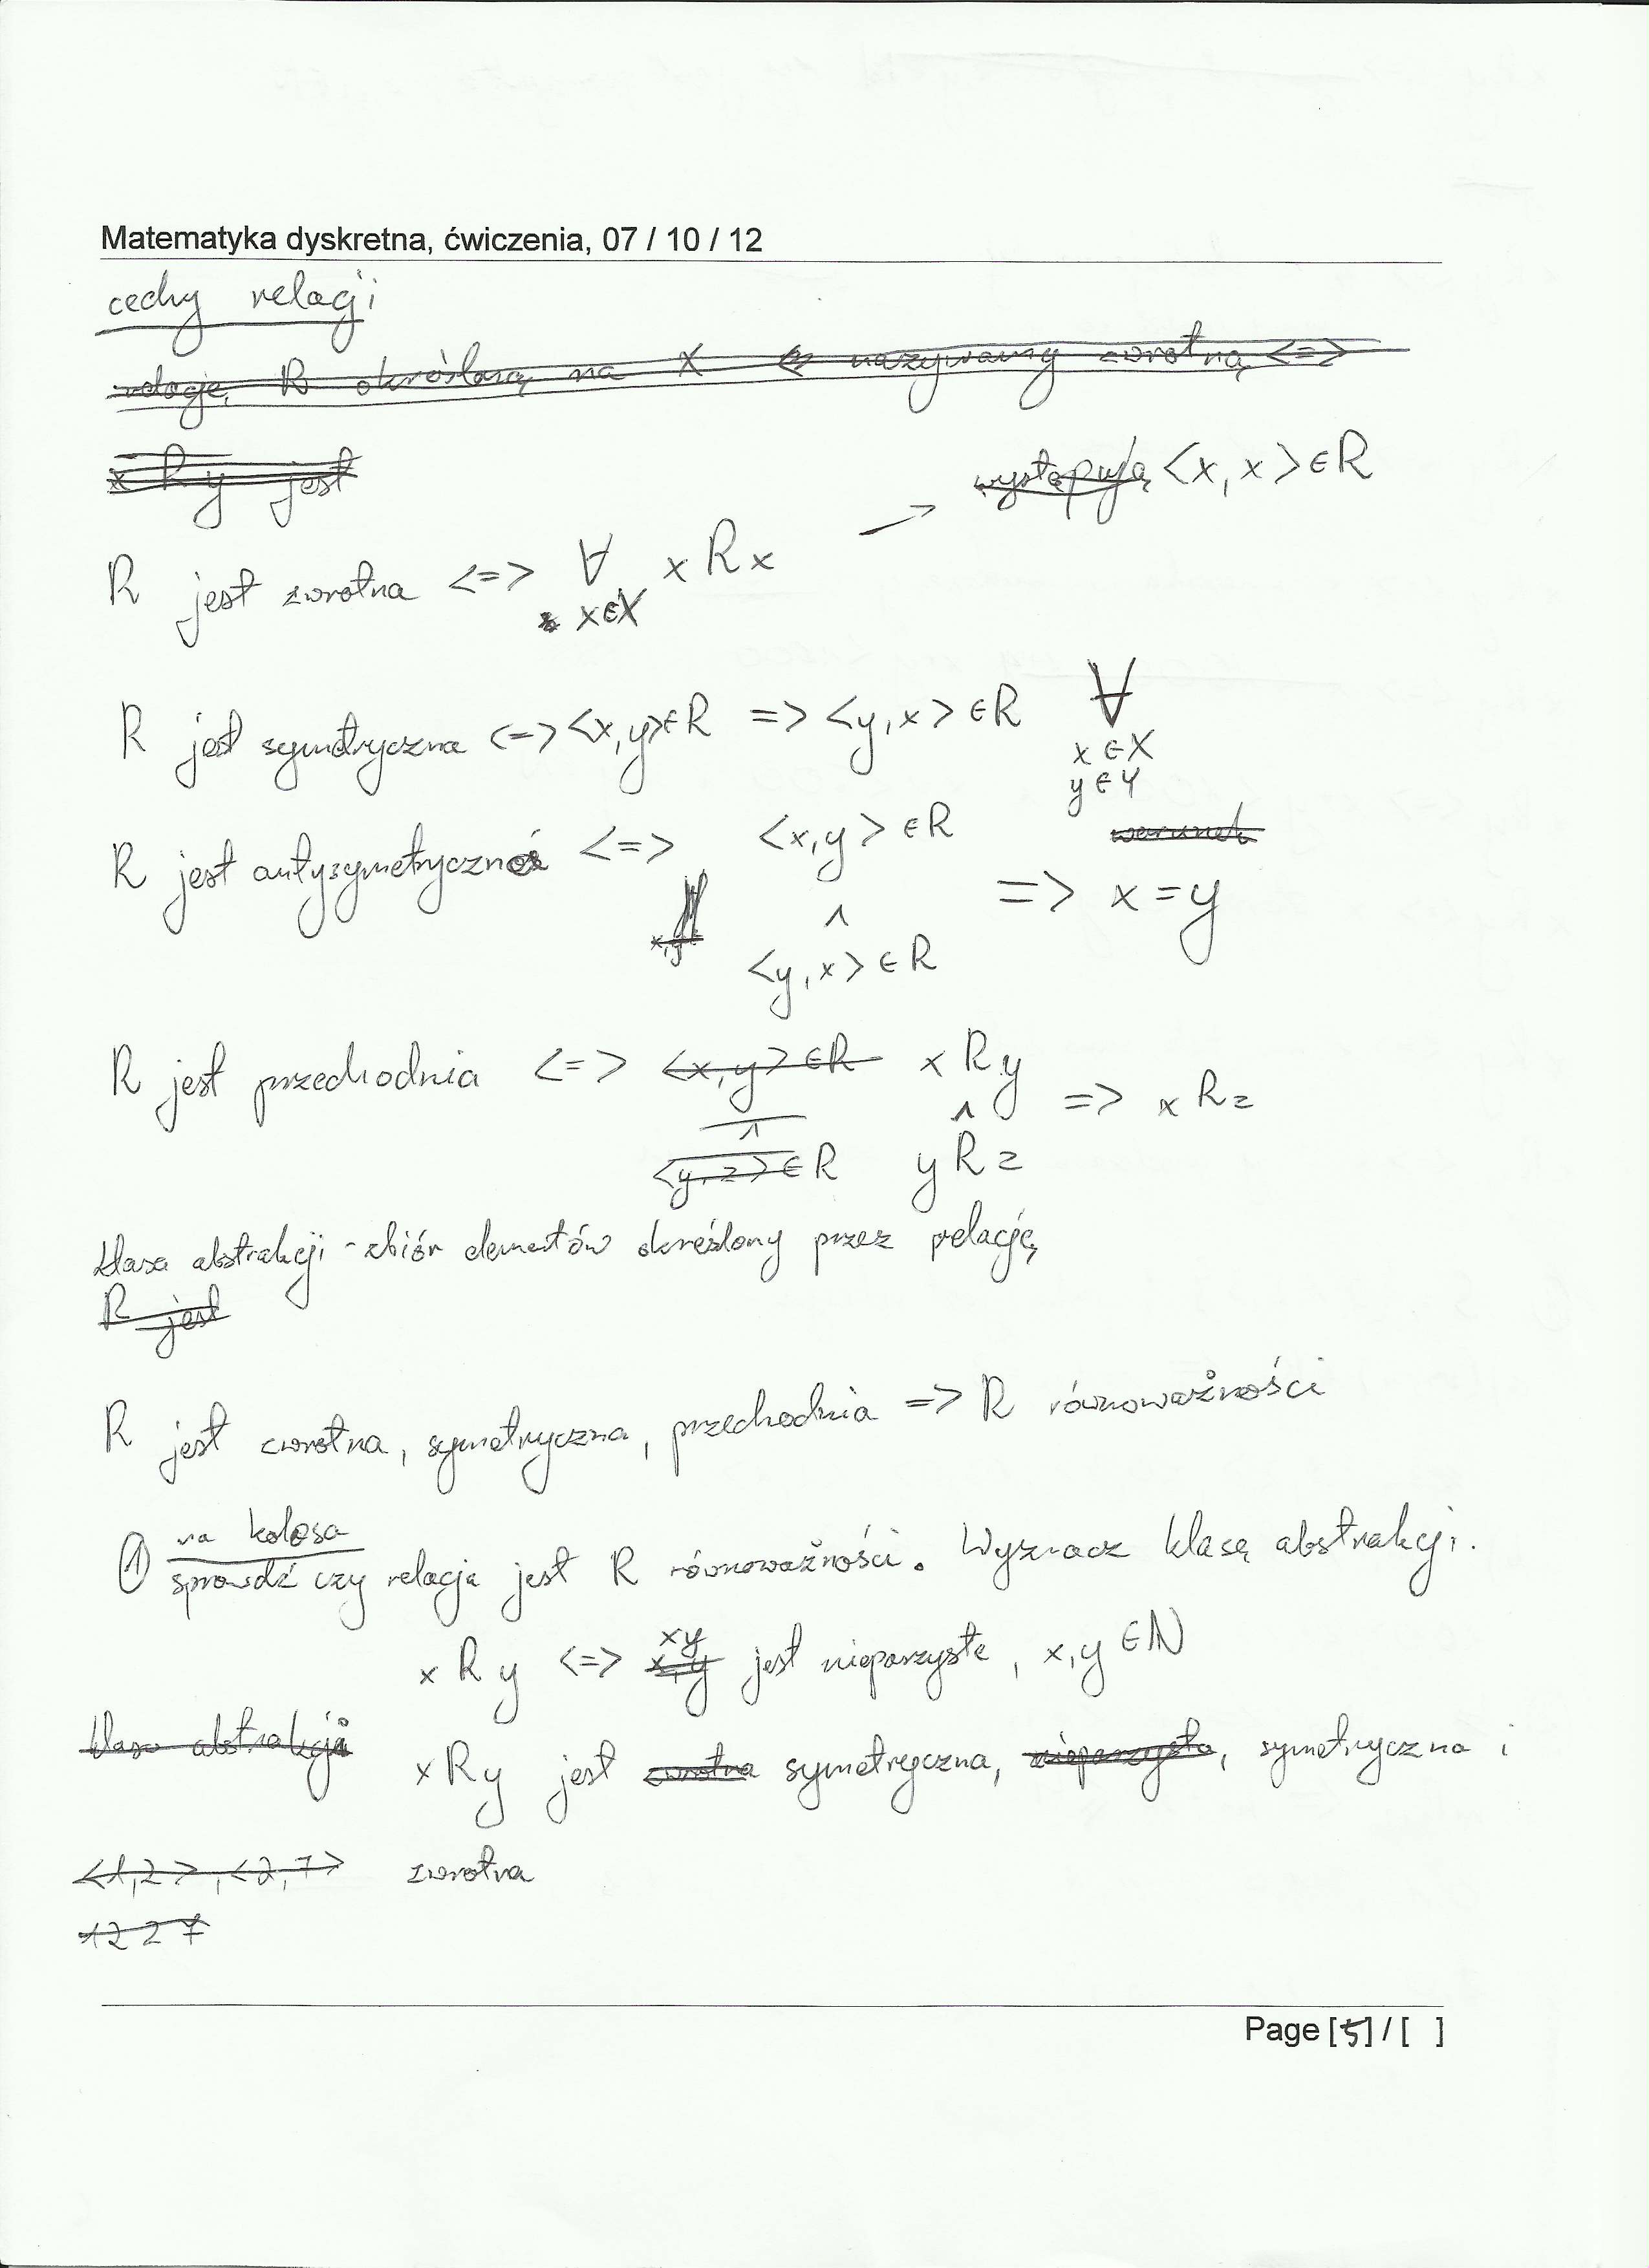 Matematyka dyskretna, ćwiczenia, 07 / 10 / 12
cechy relacji
relację R określoną na X nazywamy zwrotną <=>
x R y jest
występują <x, x> ∈ R
R jest zwrotna <=> ∀ x R x →
x∈X
R jest symetryczna <=> <x,y>∈R => <y,x> ∈R ∀
x ∈ X
y ∈ Y
warunek
R jest antysymetryczna <=> <x,y> ∈R
∧ => x = y
<y,x> ∈ R
R jest przechodnia <=> <x,y> ∈R x R y
∧ ∧ => x R z
<y,z> ∈ R y R z
klasa abstrakcji - zbiór elementów określony przez relację
R jest
R jest zwrotna, symetryczna, przechodnia => R równoważności
① na kolosa
sprawdź czy relacja jest R równoważności. Wyznacz klasę abstrakcji.
xy
x R y <=> x,y jest nieparzyste, x,y ∈ N
klasa abstrakcji x R y jest zwrotna symetryczna, nieparzysta, symetryczna i
<1,2>, <2,7> zwrotna
12 27
Page [5] / [ ]